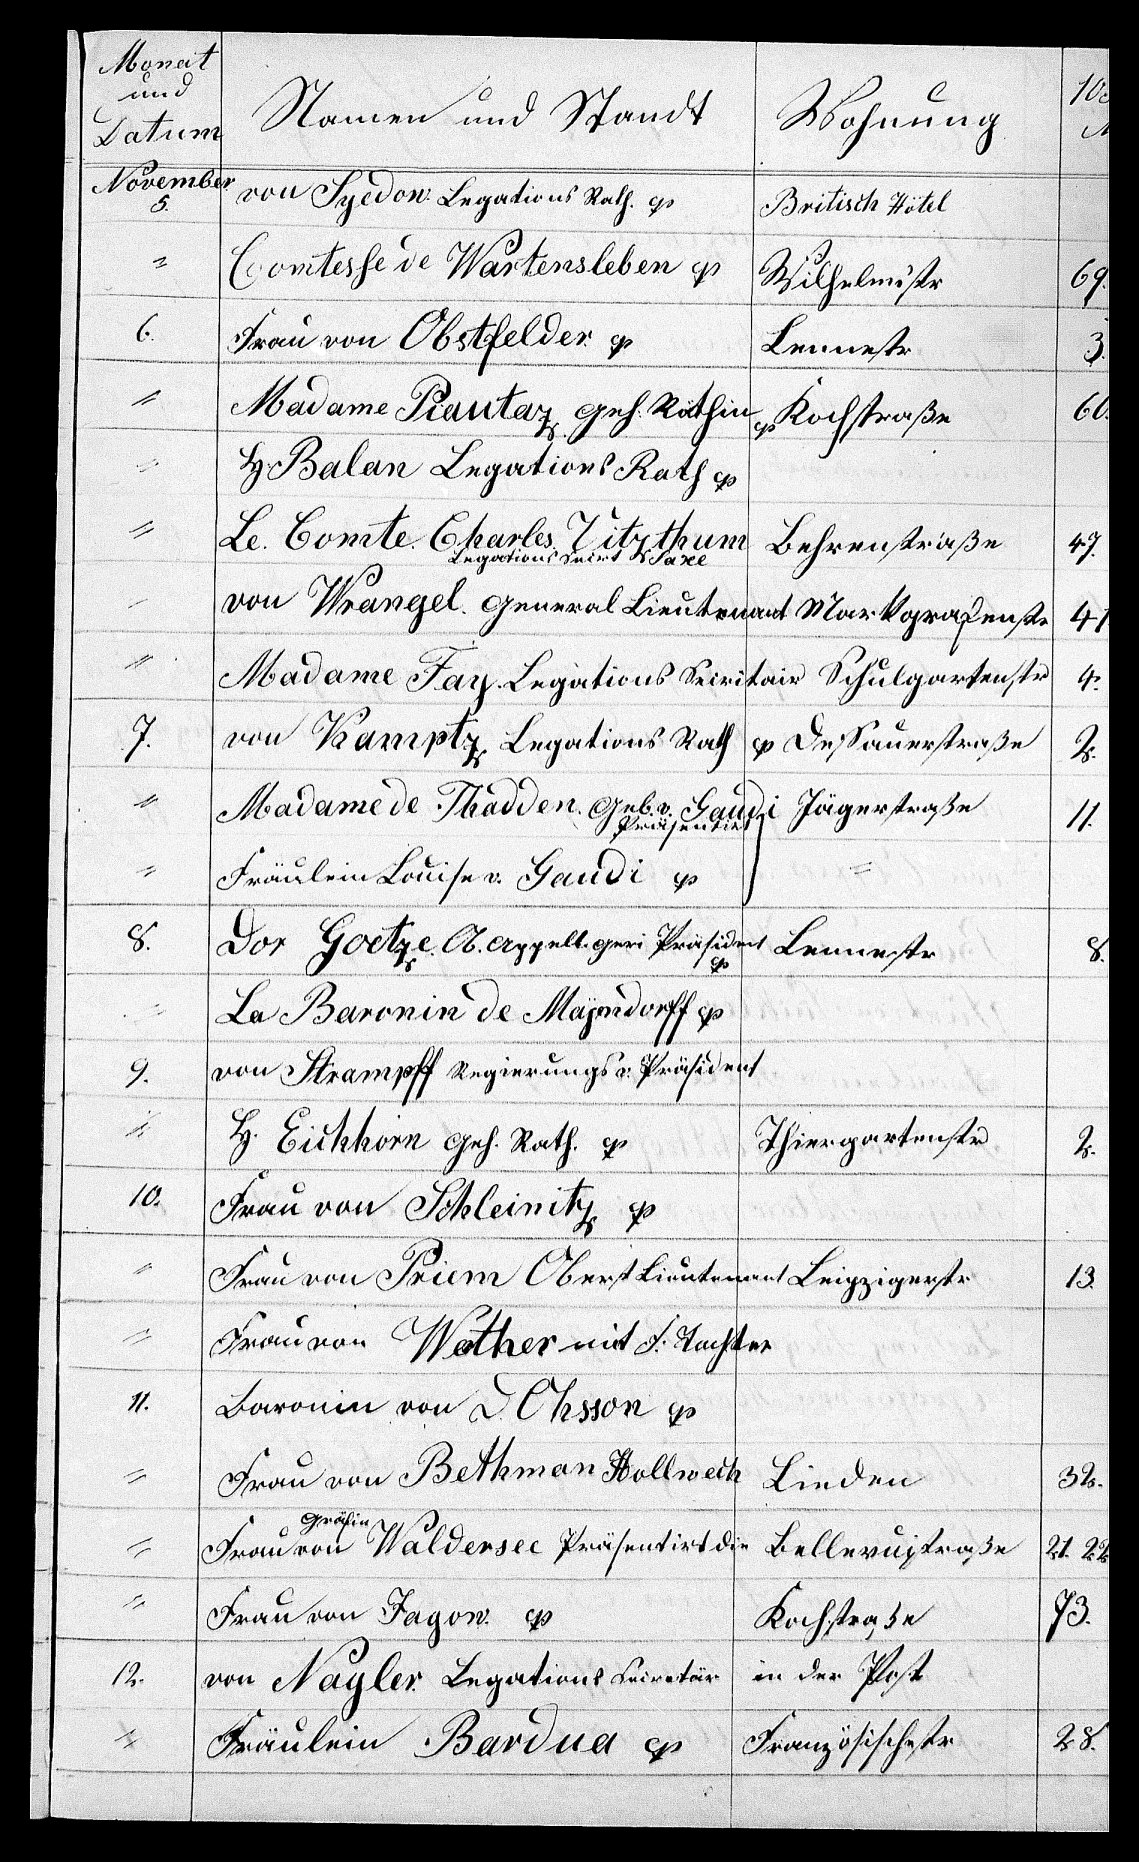 Monat und Datum Namen und Standt Wohnung
November 5. von Syedow Legations Rath. p Britisch Hôtel
" Comtesse de Wartensleben p Wilhelmstr 69.
6. Frau von Obstfelder p Lennestr 3.
" Madame Piautaz Geh. Räthin p Kochstraße 60.
" H Balan Legations Rath p
" Le. Comte. Charles. Vitzthum Behrenstraße 47.
Legations Secrt Saxe
von Wrangel. General Lieutenant Markgrafenstr 41
" Madame Fay. Legations Secritair Schulgartenstr 4.
7. von Kamptz Legations Rath p Dessauerstraße 2.
" Madame de Thadden. Geb. v. Gaudi Jägerstraße 11.
Präsentirt
" Fräulein Louise v. Gaudi p "
8. Dor Goetze. O. Appell. Geri Präsident Lennestr 8.
p
" La Baronin de Majendorff p
9. von Strampff Regierungs v. Präsident
" H. Eichhorn Geh. Rath. p Thiergartenstr 2.
10. Frau von Schleinitz p
" Frau von Priem Oberst Lieutenant Leipzigerstr 13.
" Frau von Wother mit f. Tochter
11. Baronin von D. Ohsson p
" Frau von Bethman Hollwech Linden 32.
Gräfin
" Frau von Waldersee Präsentirt die Bellevuestraße 21. 22
" Frau von Jagow. p Kochstraße 73.
12. von Nagler Legations Secretär in der Post
" Fräulein Bardua p Französischestr 28.